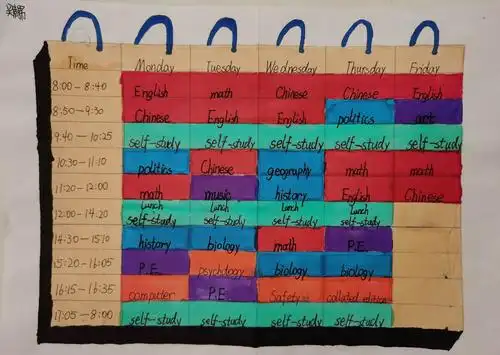 Time Monday Tuesday Wednesday Thursday Friday
8:00-8:40 English math Chinese Chinese English
8:50-9:30 Chinese English English politics art
9:40-10:25 self-study self-study self-study self-study self-study
10:30-11:10 politics Chinese geography math math
11:20-12:00 math music history English Chinese
12:00-14:20 Lunch self-study Lunch self-study Lunch self-study Lunch self-study
14:30-15:10 history biology math P.E.
15:20-16:05 P.E. psychology biology biology
16:15-16:35 computer P.E. Safety
17:05-8:00 self-study self-study self-study self-study